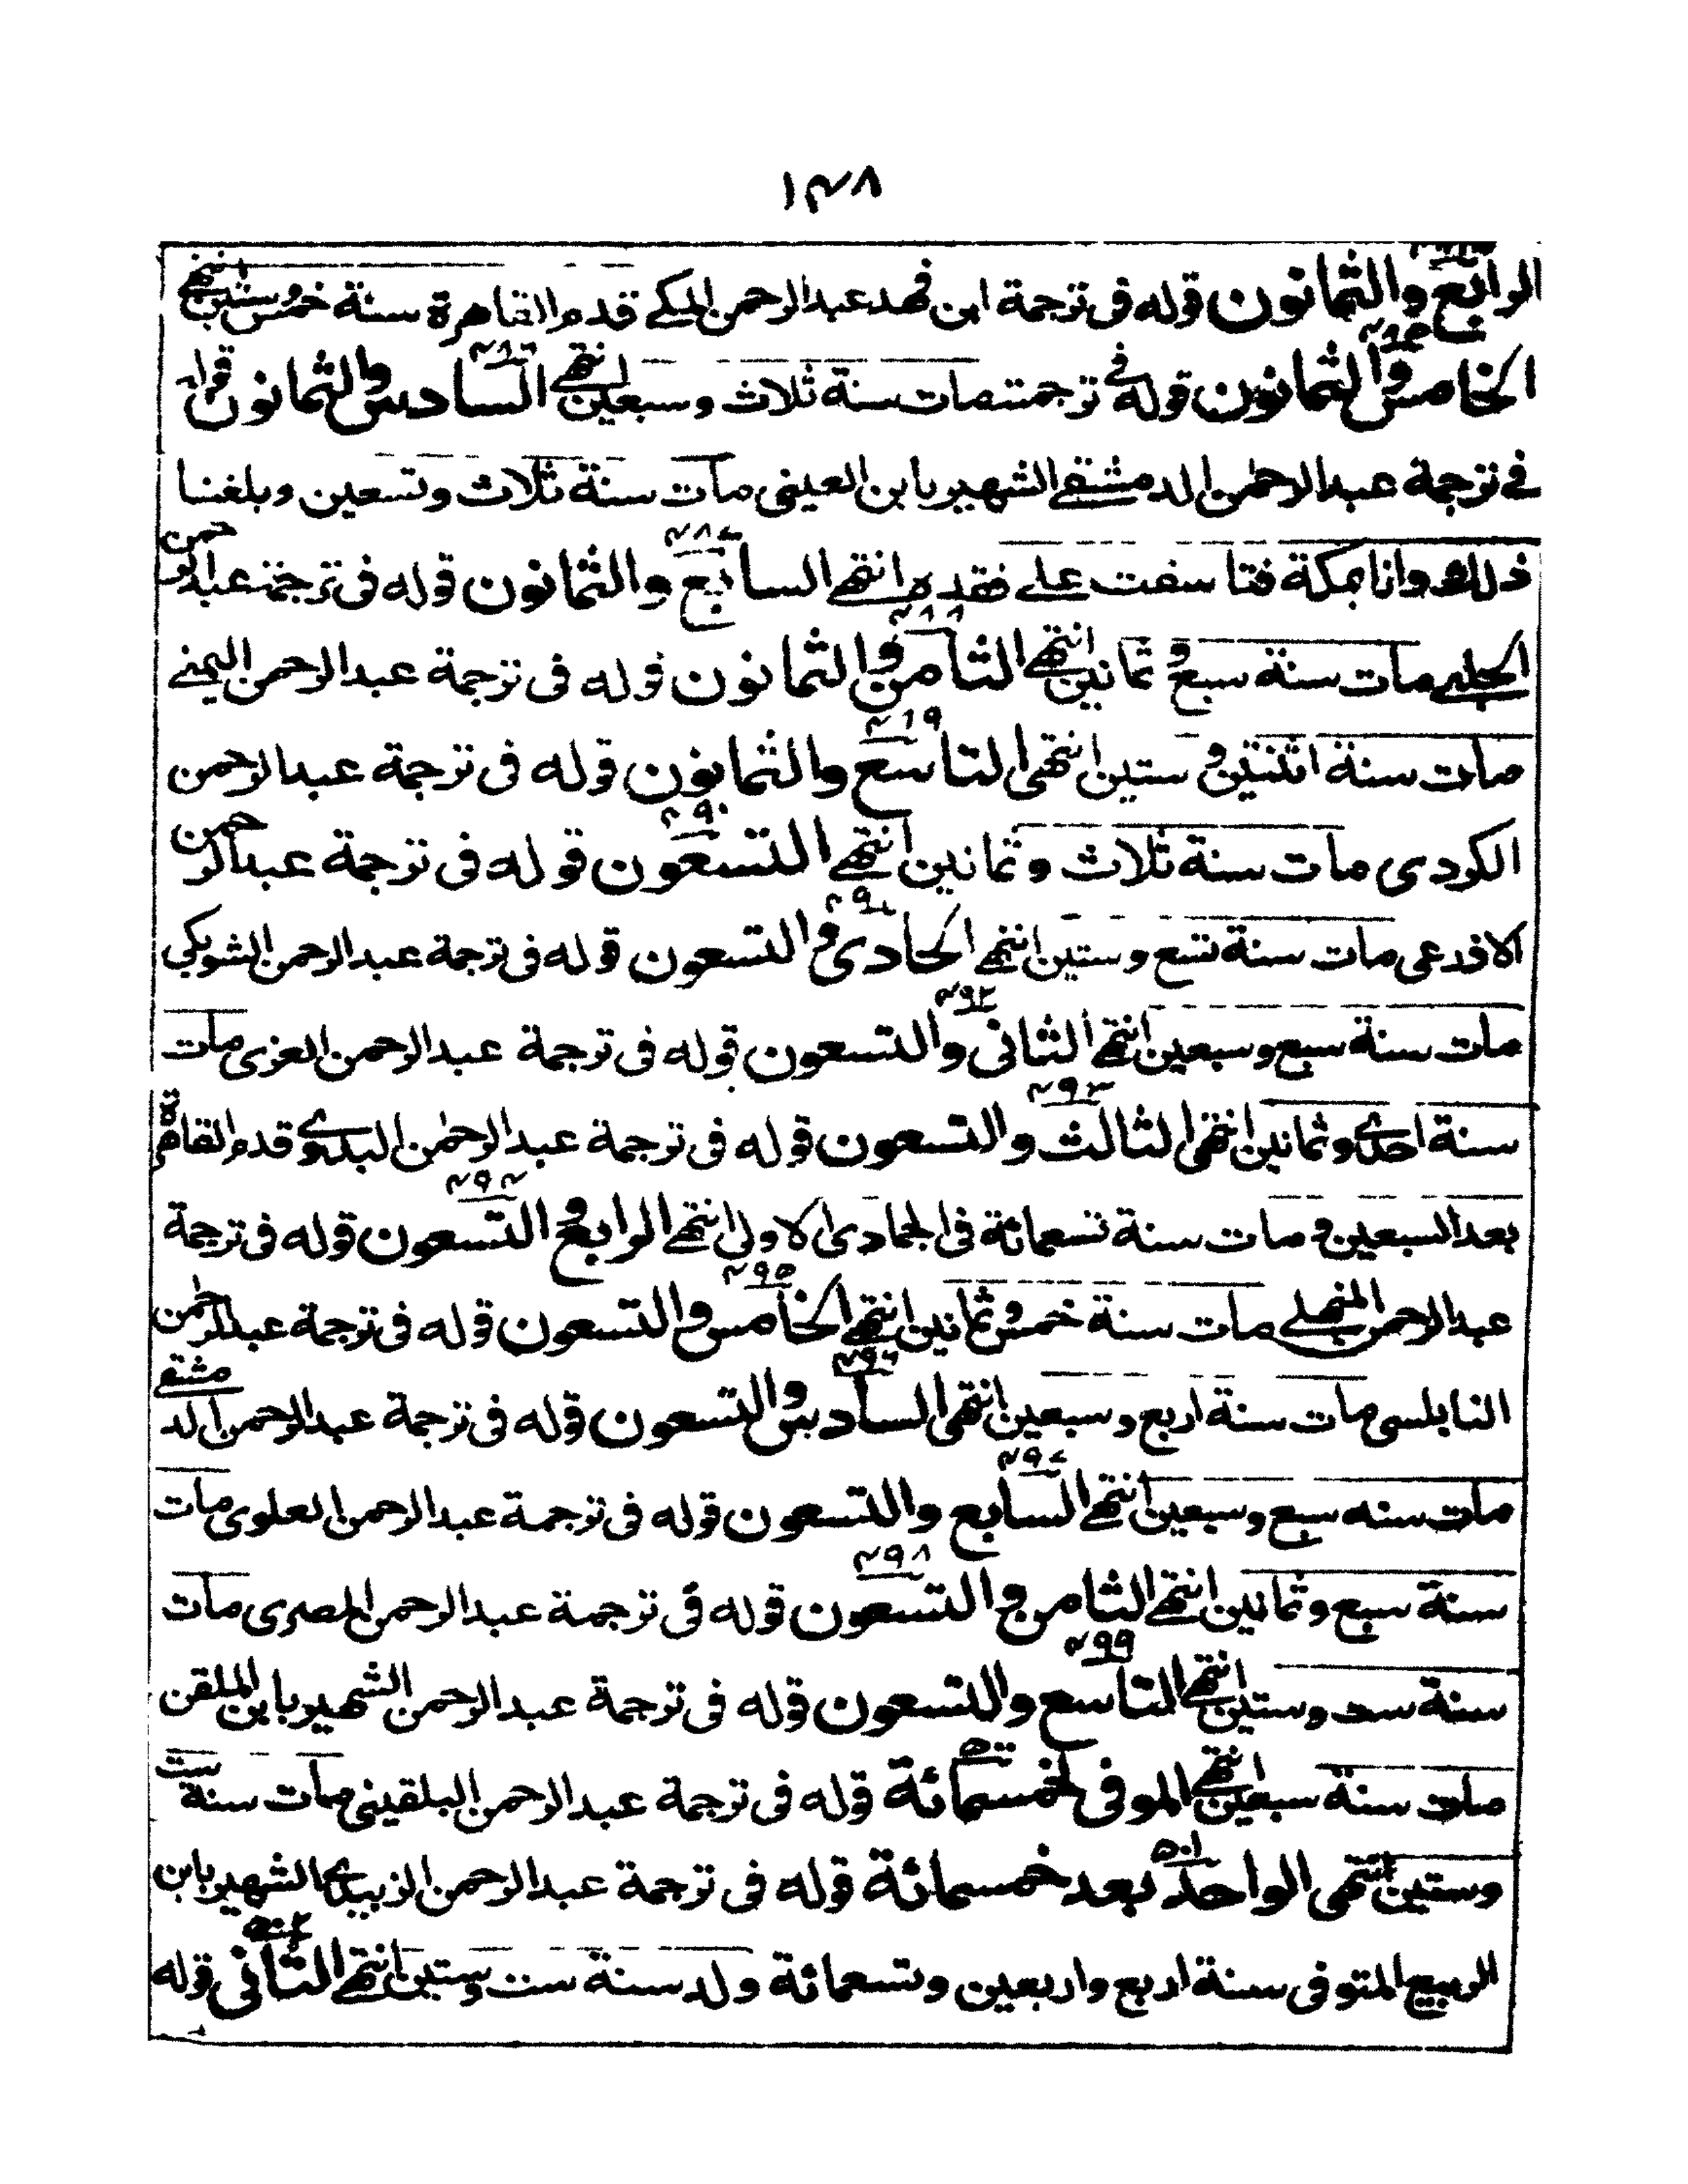 ١٣٨
الرابع والثمانون قوله فى ترجمة ابن فهد عبد الرحمن المكے قدم القاهرة سنة خمس وستين انتهے
٤٨٥
الخامس والثمانون قوله فے ترجمته مات سنة ثلاث وسبعين انتهے السادس والثمانون قوله
٤٨٦
فے ترجمة عبد الرحمٰن الدمشقے الشهير بابن العينى مات سنة ثلاث وتسعين وبلغنا
ذلك وانا بمكة فتاسفت علے فقده انتهے السابع والثمانون قوله فى ترجمة عبد الرحمن
٤٨٧
الحلبے مات سنة سبع وثمانين انتهے الثامن والثمانون قوله فى ترجمة عبد الرحمن اليمنے
٤٨٨
مات سنة اثنتين وستين انتهى التاسع والثمانون قوله فى ترجمة عبد الرحمن
٤٨٩
الكردى مات سنة ثلاث وثمانين انتهے التسعون قوله فى ترجمة عبد الرحمن
٤٩٠
الاذرعى مات سنة تسع وستين انتهے الحادى والتسعون قوله فى ترجمة عبد الرحمن الشويكي
٤٩١
مات سنة سبع وسبعين انتهے الثانى والتسعون قوله فى ترجمة عبد الرحمن العزى مات
٤٩٢
سنة احدے وثمانين انتهى الثالث والتسعون قوله فى ترجمة عبد الرحمٰن البدوے قدم القاهرة
٤٩٣
بعد السبعين ومات سنة تسعمائة فى الجمادى الاولى انتهے الرابع والتسعون قوله فى ترجمة
٤٩٤
عبد الرحمن المنهلے مات سنة خمس وثمانين انتهے الخامس والتسعون قوله فى ترجمة عبد الرحمٰن
٤٩٥
النابلسى مات سنة اربع وسبعين انتهى السادس والتسعون قوله فى ترجمة عبد الرحمن الدمشقے
٤٩٦
مات سنه سبع وسبعين انتهے السابع والتسعون قوله فى ترجمة عبد الرحمن العلوى مات
٤٩٧
سنة سبع وثمانين انتهے الثامن والتسعون قوله فى ترجمة عبد الرحمن المصرى مات
٤٩٨
سنة ست وستين انتهے التاسع والتسعون قوله فى ترجمة عبد الرحمن الشهير بابن الملقن
٤٩٩
مات سنة سبعين انتهے الموفى لخمسمائة قوله فى ترجمة عبد الرحمن البلقينى مات سنة ست
٥٠٠
وستين انتهى الواحد بعد خمسمائة قوله فى ترجمة عبد الرحمن الزبيدے الشهير بابن
٥٠١
الربيع المتوفى سنة اربع واربعين وتسعمائة ولد سنة ست وستين انتهے الثانى قوله
٥٠٢